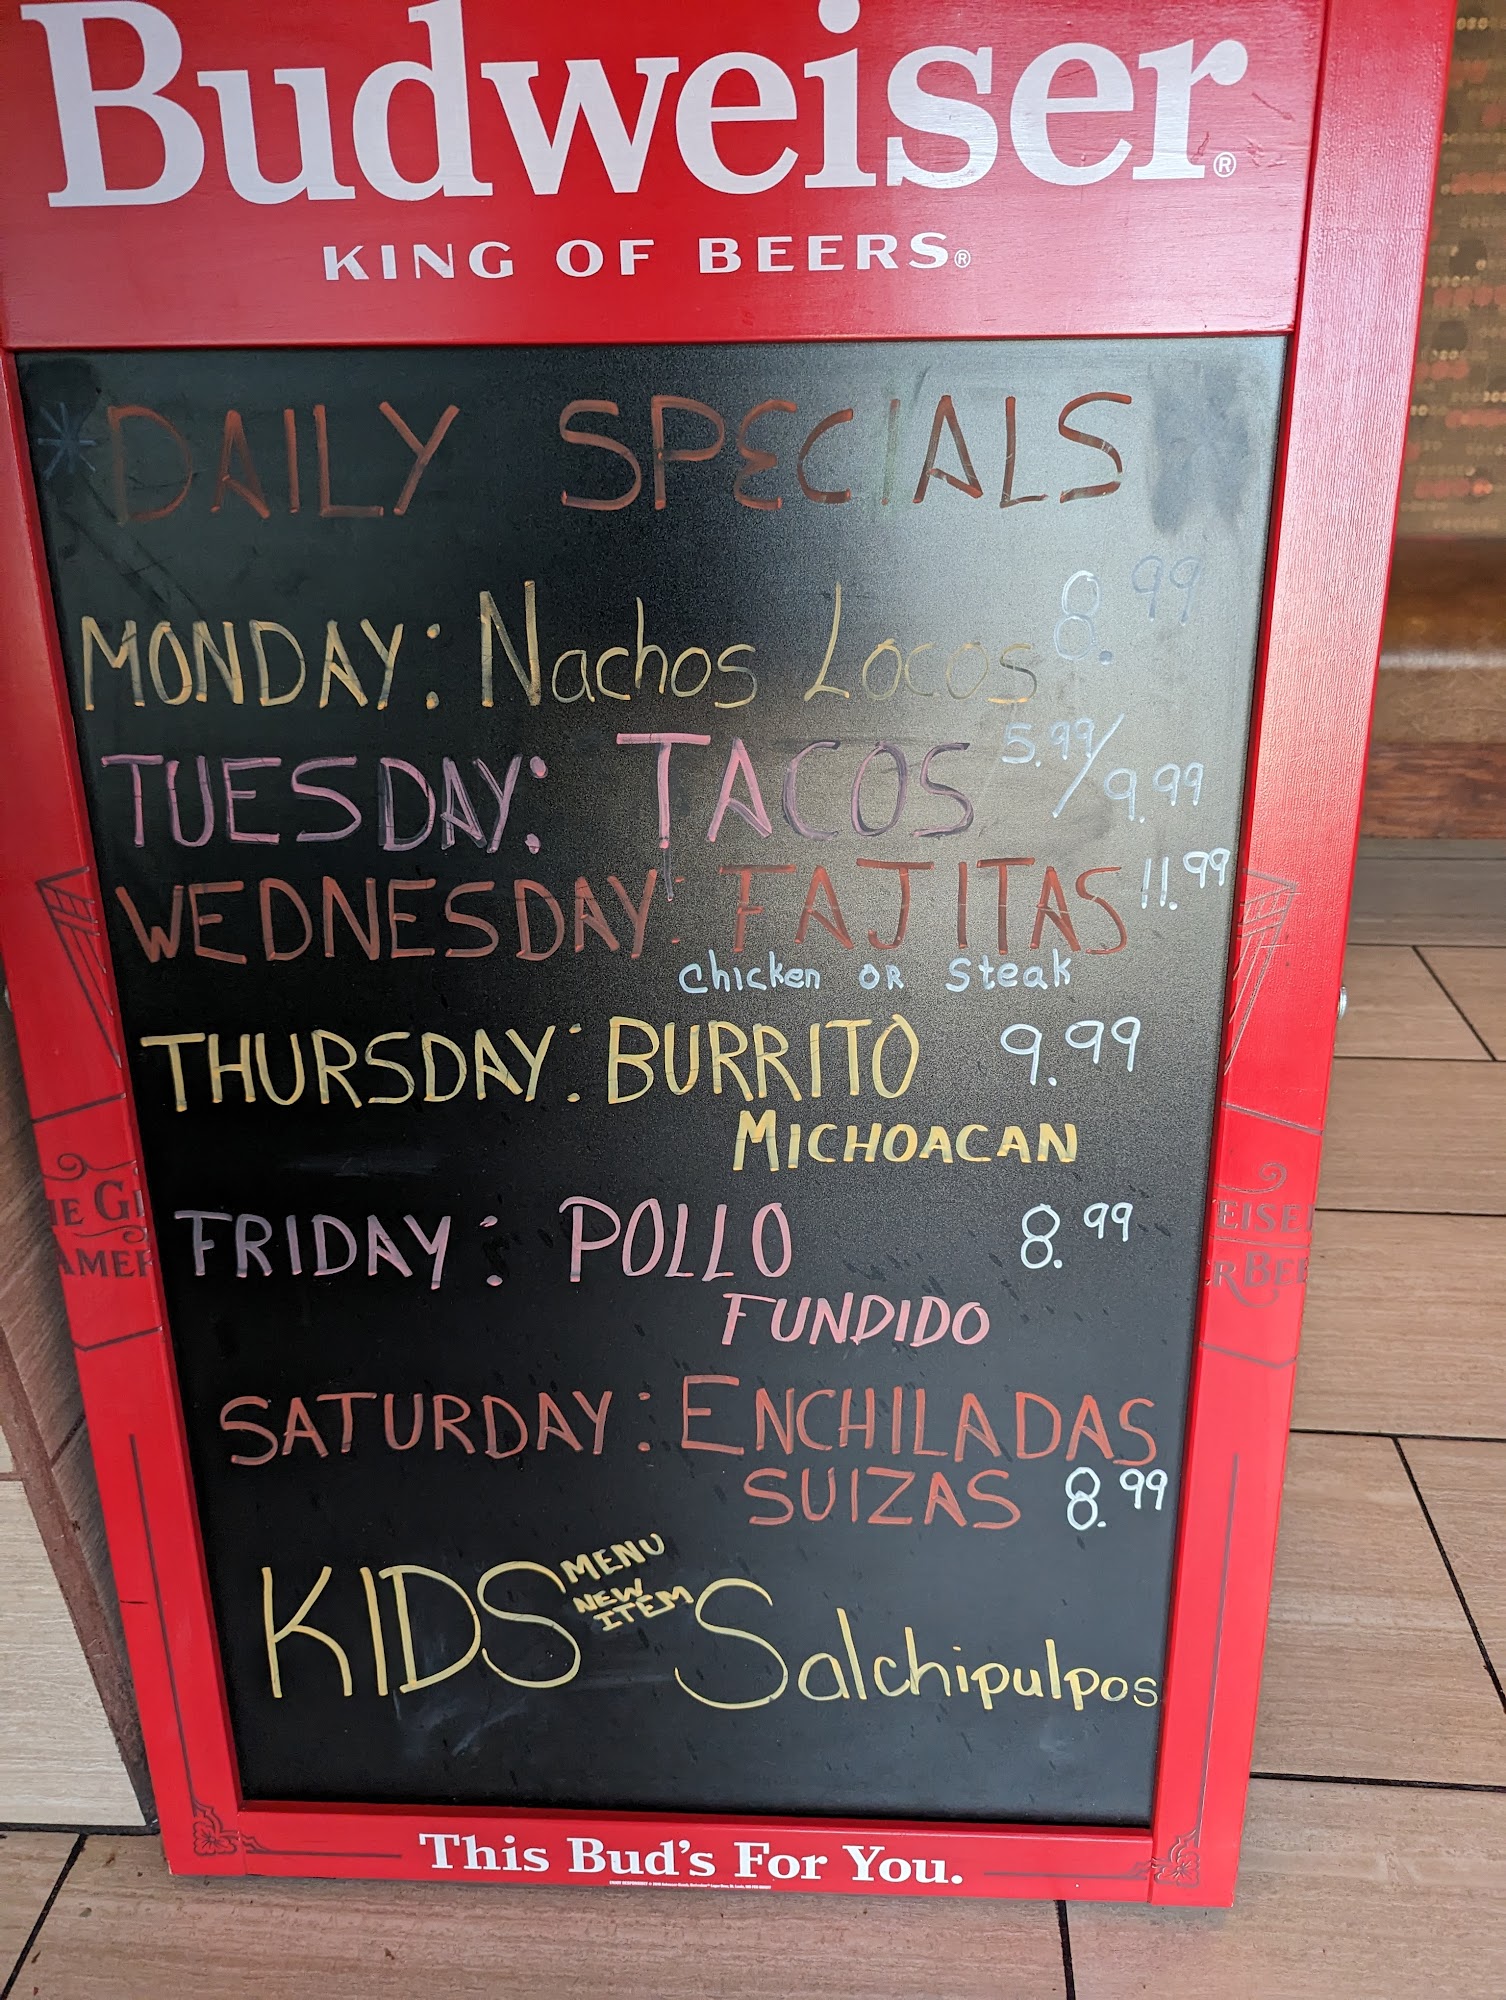 Budweiser®
KING OF BEERS®
* DAILY SPECIALS
MONDAY: Nachos Locos 8.99
TUESDAY: TACOS 5.99/9.99
WEDNESDAY: FAJITAS 11.99
chicken OR Steak
THURSDAY: BURRITO 9.99
MICHOACAN
FRIDAY: POLLO 8.99
FUNDIDO
SATURDAY: ENCHILADAS
SUIZAS 8.99
KIDS MENU NEW ITEM Salchipulpos
This Bud's For You.